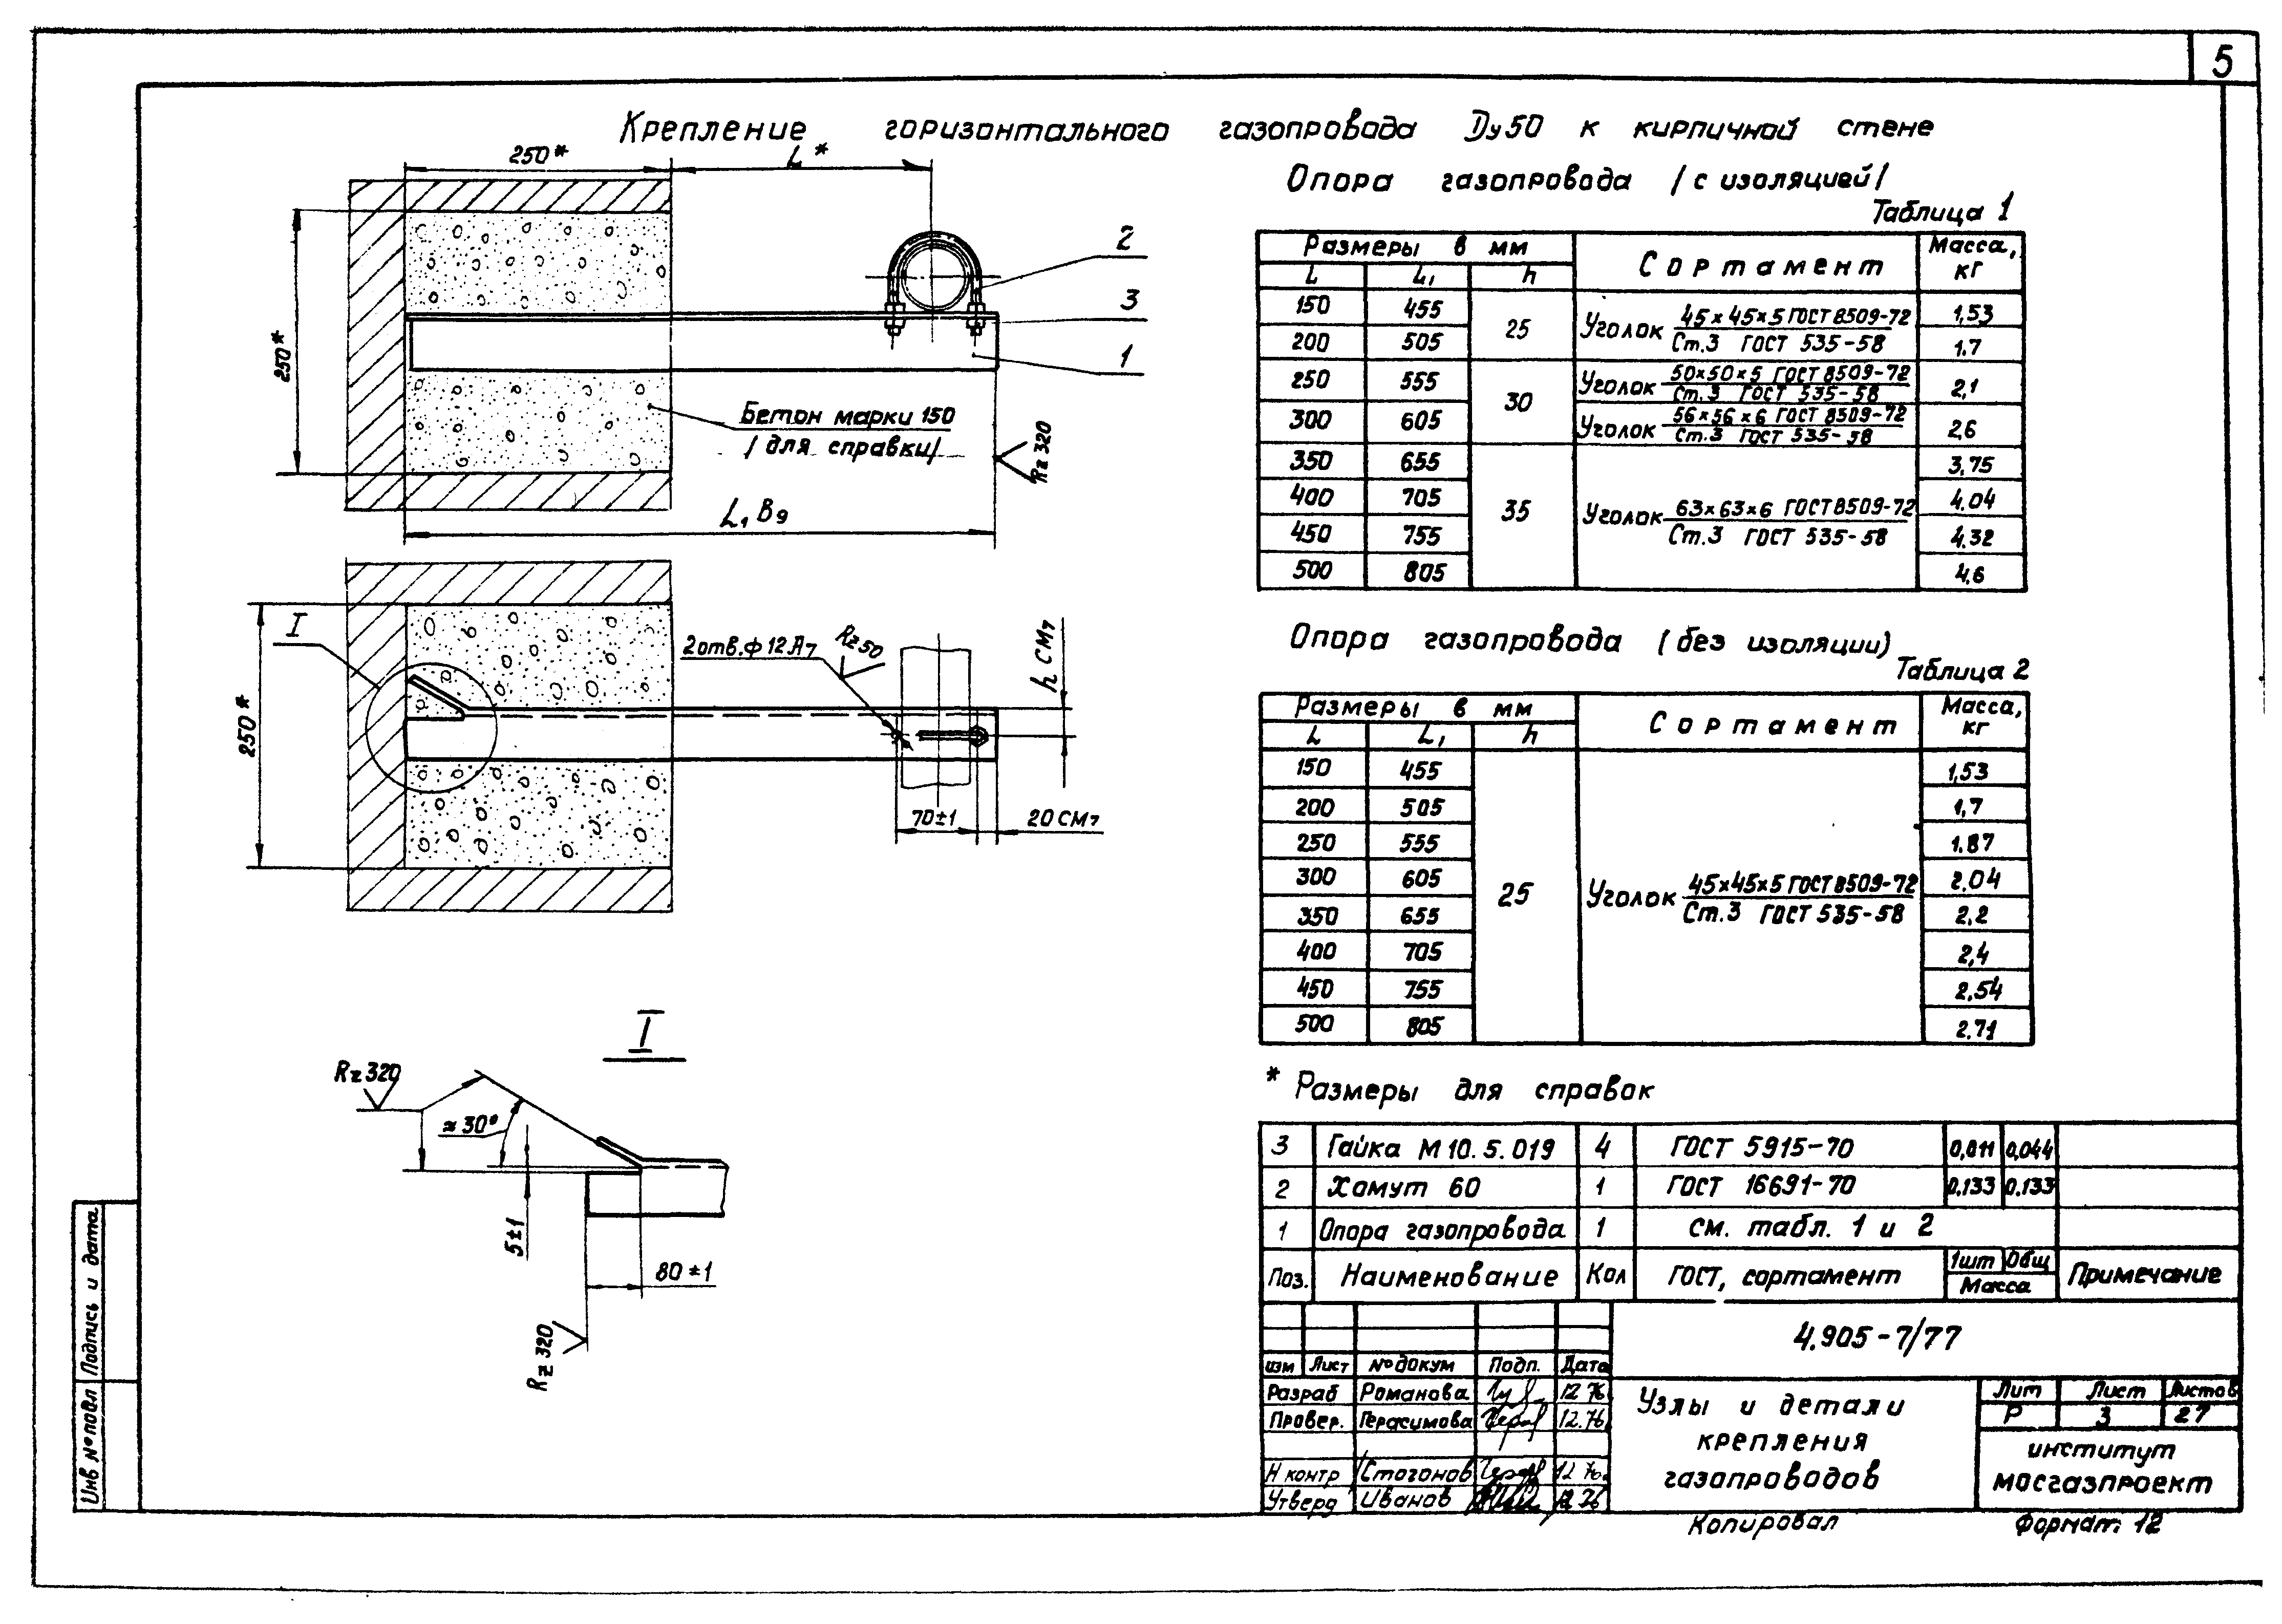 5
Крепление горизонтального газопровода Dу50 к кирпичной стене
250*
L*
250*
2
3
1
Бетон марки 150
/для справки/
Rz320
L₁ B9
I
250*
2 отв. ф 12 А7
Rz50
h СМ7
70±1
20 СМ7
I
Rz320
≈30°
5±1
80±1
Rz320
Опора газопровода /с изоляцией/
Таблица 1
Размеры в мм Сортамент Масса, кг
L L₁ h
150 455 25 Уголок 45×45×5 ГОСТ 8509-72 1,53
200 505 Ст.3 ГОСТ 535-58 1.7
250 555 30 Уголок 50×50×5 ГОСТ 8509-72 2,1
Ст.3 ГОСТ 535-58
300 605 Уголок 56×56×6 ГОСТ 8509-72 2,6
Ст.3 ГОСТ 535-58
350 655 3,75
400 705 35 Уголок 63×63×6 ГОСТ 8509-72 4.04
450 755 Ст.3 ГОСТ 535-58 4.32
500 805 4,6
Опора газопровода (без изоляции)
Таблица 2
Размеры в мм Сортамент Масса, кг
L L₁ h
150 455 1,53
200 505 1,7
250 555 1.87
300 605 25 Уголок 45×45×5 ГОСТ 8509-72 2.04
350 655 Ст.3 ГОСТ 535-58 2.2
400 705 2,4
450 755 2.54
500 805 2.71
* Размеры для справок
3 Гайка М10.5.019 4 ГОСТ 5915-70 0,011 0,044
2 Хамут 60 1 ГОСТ 16691-70 0,133 0.133
1 Опора газопровода 1 см. табл. 1 и 2
Поз. Наименование Кол ГОСТ, сортамент 1шт Общ Масса Примечание
4.905-7/77
изм Лист № докум Подп. Дата
Разраб Романова 12.76
Провер. Герасимова 12.76
Н контр Стогонов 12 76.
Утверд Иванов 12 76
Узлы и детали
крепления
газопроводов
Лит Лист Листов
Р 3 27
институт
мосгазпроект
Копировал Формат 12
Подпись и дата
Инв № подл